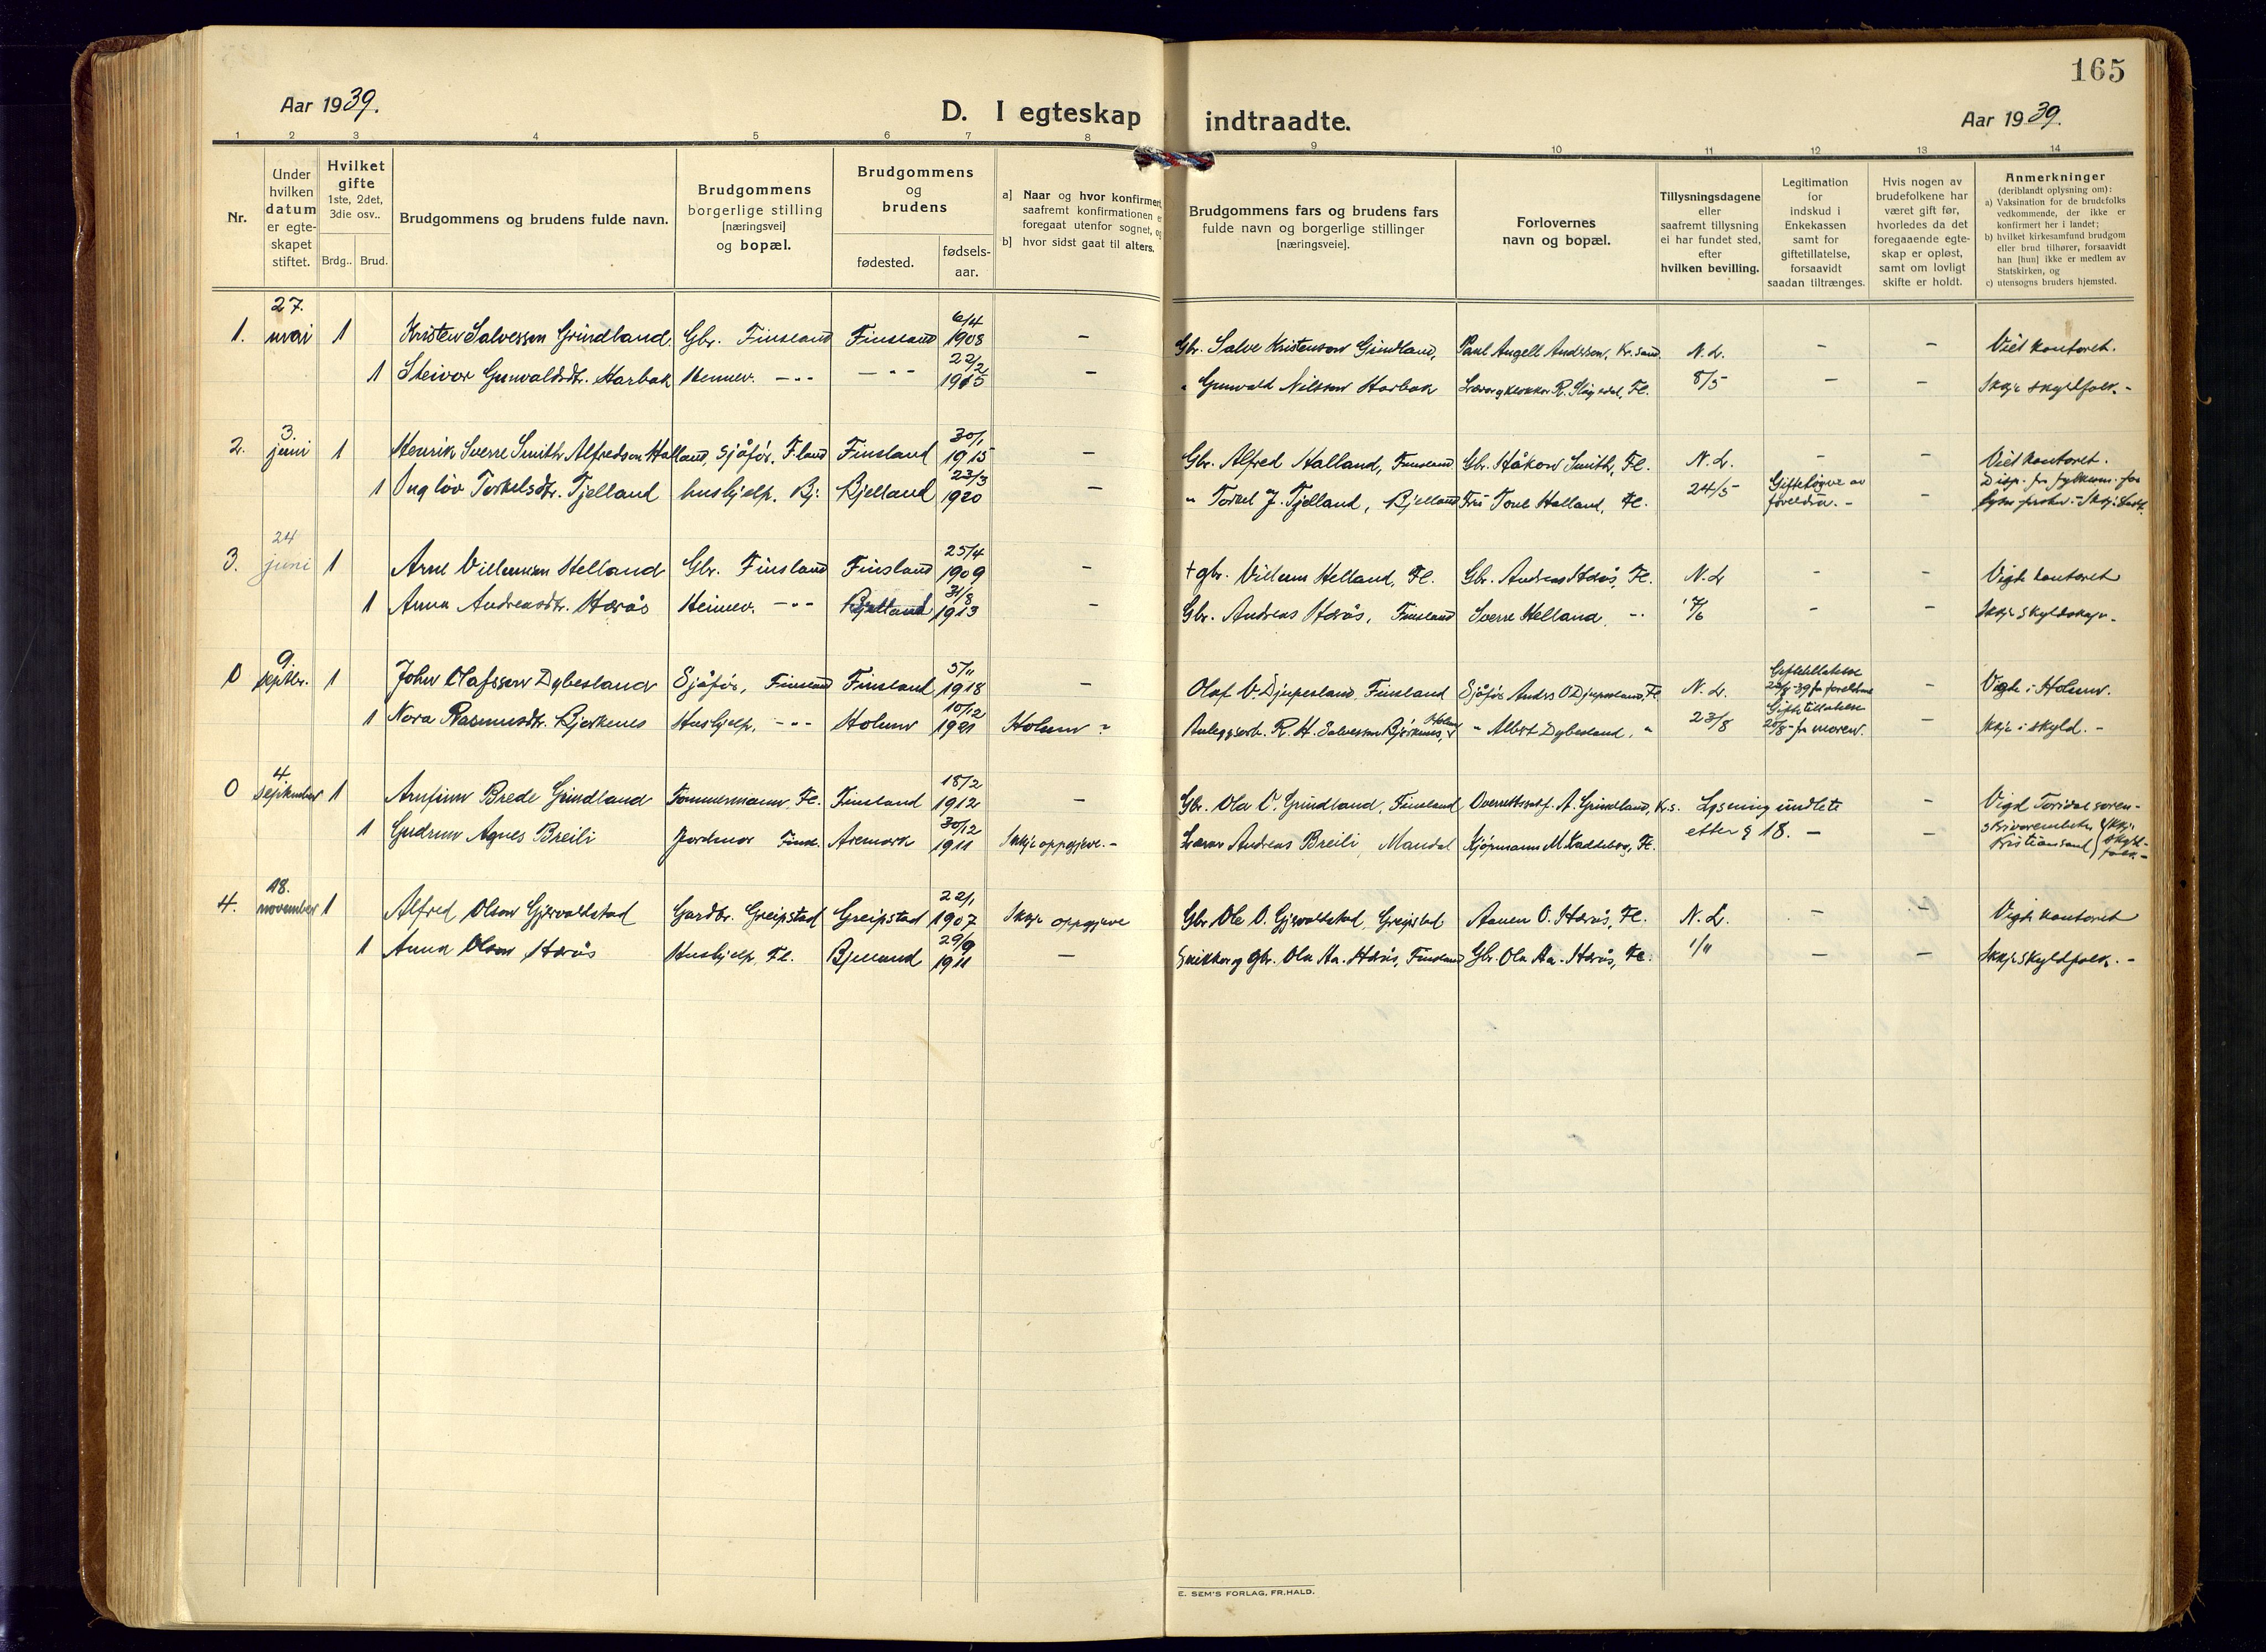 165
Aar 1939.
D. I egteskap indtraadte.
Aar 1939.
1 2 3 4 5 6 7 8 9 10 11 12 13 14
Nr.
Under hvilken datum er egte-skapet stiftet.
Hvilket gifte 1ste, 2det, 3die osv..
Brdg.. Brud.
Brudgommens og brudens fulde navn.
Brudgommens borgerlige stilling [næringsvei] og bopæl.
Brudgommens og brudens
fødested.
fødsels-aar.
a] Naar og hvor konfirmert, saafremt konfirmationen e foregaat utenfor sognet, og
b] hvor sidst gaat til alters.
Brudgommens fars og brudens fars fulde navn og borgerlige stillinger [næringsveie].
Forlovernes navn og bopæl.
Tillysningsdagene eller saafremt tillysning ei har fundet sted, efter hvilken bevilling.
Legitimation for indskud i Enkekassen samt for giftetillatelse, forsaavidt saadan tiltrænges.
Hvis nogen av brudefolkene har været gift før, hvorledes da det foregaaende egte-skap er opløst, samt om lovligt skifte er holdt.
Anmerkninger (deriblandt oplysning om):
a) Vaksination for de brudefolks vedkommende, der ikke er konfirmert her i landet;
b) hvilket kirkesamfund brudgom eller brud tilhører, forsaavidt han [hun] ikke er medlem av Statskirken, og
c) utensogns bruders hjemsted.
1. 27. mai 1 Kristen Salvesson Grindland. Gbr. Finsland Finsland 6/4 1908 - Gbr. Salve Kristenson Grindland, Paul Angell Andersen, Kr.sand N. L. - - Viet kontoret.
1 Steivor Gunvaldsdtr. Harbak Heimev. -"- -"- 22/2 1915 - " Gunvald Nilsson Harbak Lærar og klokkar R. Fl. 8/5 - - Ikkje skyldfolk.-
2. 3. juni 1 Henrik Sverre Smith Alfredson Halland, Sjåfør. F.land Finsland 30/1 1915 - Gbr. Alfred Halland, Finsland Gbr. Håkon Smith, Fl. N. L. - - Viet kontoret.
1 Ingløv Torkelsdtr. Tjelland hushjelp. Bj. Bjelland 23/3 1920 - " Torkel J. Tjelland, Bjelland Fru Halland, Fl. 24/5 Gifteløyve av foreldra.- - Disp. fr. fylkesm. for
3. 24 juni 1 Arne Villumsen Helland Gbr. Finsland Finsland 25/4 1909 - + gbr. Villum Helland, Fl. Gbr. Andreas Hærås, Fl. N. L - - Vigde kontoret
1 Anna Andreasdtr. Hærås Heimev. -"- Bjelland 31/8 1913 - Gbr. Andreas Hærås, Finsland Sverre Helland. -"- 7/6 - - Ikkje skyldskap.
0 9. septbr. 1 John Olafsson Dybesland Sjåfør, Finsland Finsland 5/11 1918 - Olaf V. Djupesland, Finsland Sjåfør Anders O Djupesland, Fl. N. L. Giftetillatelse 22/8-39 fr foreldrene - Vigde i Holum.
1 Nora Rasmusdtr. Bjerkenes Hushjelp, -"- Holum 10/12 1921 Holum Anleggsarb. R. H. Salvesson Bjørkenes, Holum " Albert Dybesland, " 23/8 Giftetillatelse 20/8- fr moren. - Ikkje i skyld.-
0 4. september 1 Arnfinn Brede Grindland Tømmermann, Fl. Finsland 18/2 1912 - Gbr. Ola O. Grindland, Finsland Overrettssakf. A. Grindland, Kr.s. Lysning undlete - Vigd Toridal soren-
1 Gudrun Agnes Breili Jordmor Finsl. Aremark 30/12 1911 Ikkje oppgjeve.- Lærar Andreas Breili, Mandal Kjøpmann M. Fl. etter § 18. - - skriverembete Kristiansand Ikkje skyld-folk.-
4. 18. november 1 Alfred Olson Gjervoldstad Gardbr. Greipstad Greipstad 22/1 1907 Ikkje oppgjeve Gbr. Ole O. Gjervoldstad, Greipstad Aanen O. Hærås, Fl. N. L. - - Vigde kontoret
1 Anna Olsen Hærås Hushjelp, Fl. Bjelland 29/9 1911 - Snikkar og gbr. Ola Aa. Hærås, Finsland Gbr. Ola Aa. Hærås, Fl. 1/11 - - Ikkje skyldfolk.-
E. SEM'S FORLAG, FR.HALD.